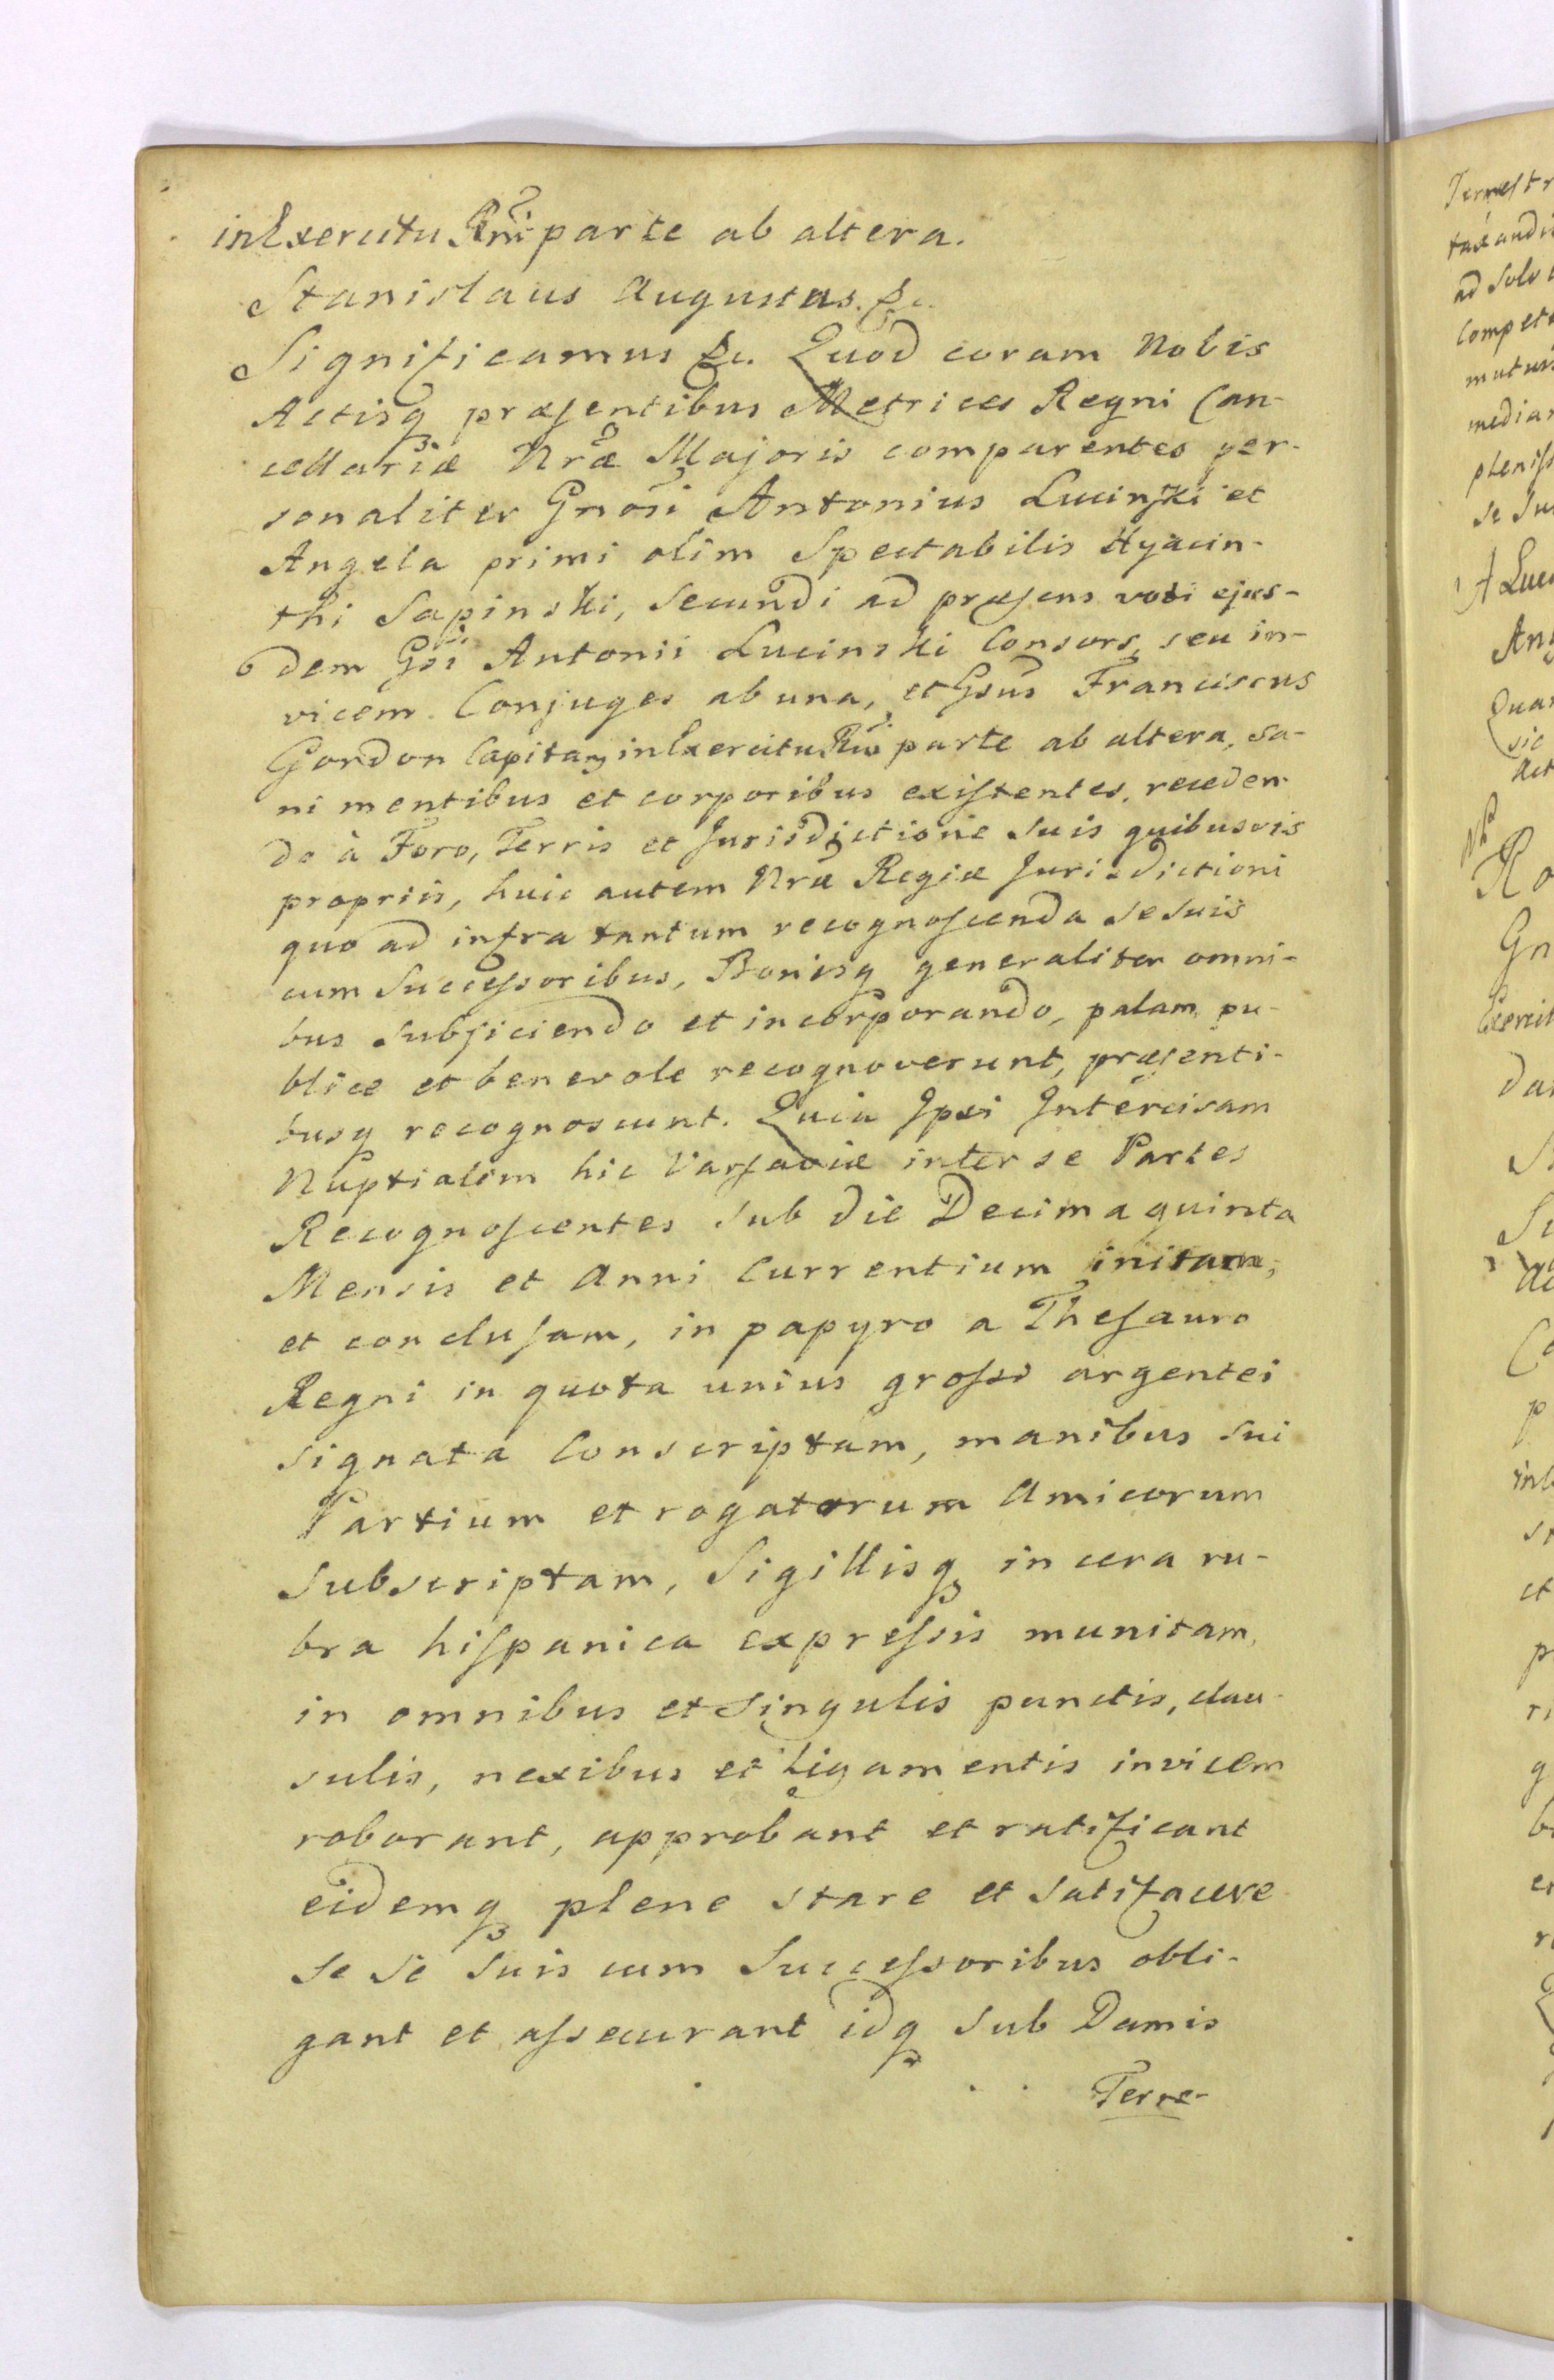 in Exercitu Rni parte ab altera.
Stanislaus Augustus &c.
Significamus &c. Quod coram Nobis
Actisq præsentibus Metrices Regni Can-
cellariæ Nræ Majoris comparentes per-
sonaliter Gnosi Antonius Lucinski et
Angela primi olim Spectabilis Hyacin-
thi Sapinski, Secundi ad præsens voti ejus-
dem Gsi Antonii Lucinski Consors, seu in-
vicem Conjuges ab una, et Gsus Franciscus
Gordon Capitan in Exercitu Rni parte ab altera, sa-
ni mentibus et corporibus existentes, receden-
do à Foro, Terris et Jurisdictione suis quibusvis
propriis, huic autem Nræ Regiæ Jurisdictioni
quo ad infra tantum recognoscenda se suis
cum Successoribus, Bonisq generaliter omni-
bus subjiciendo et incorporando, palam pu-
blice et benevole recognoverunt, præsenti-
busq recognoscunt. Quia Ipsi Intercisam
Nuptialem hic Varsaviæ inter se Partes
Recognoscentes sub die Decima quinta
Mensis et Anni Currentium initam,
et conclusam, in papyro a Thesauro
Regni in quota unius grossi argentei
signata Conscriptam, manibus sui
Partium et rogatorum Amicorum
subscriptam, Sigillisq in cera ru-
bra hispanica expressis munitam,
in omnibus et singulis punctis, clau-
sulis, nexibus et ligamentis invicem
roborant, approbant et ratificant
eidemq plene stare et satisfacere
se se suis cum Successoribus obli-
gant et assecurant idq sub Damis
Terre-